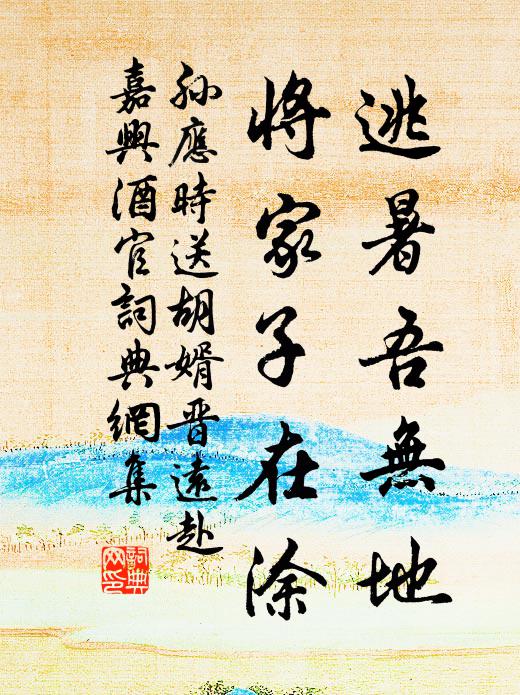 逃暑吾無地
將家子在涂
孫應時送胡婿晋遠赴
嘉興酒官詞典網集
詞典
网印